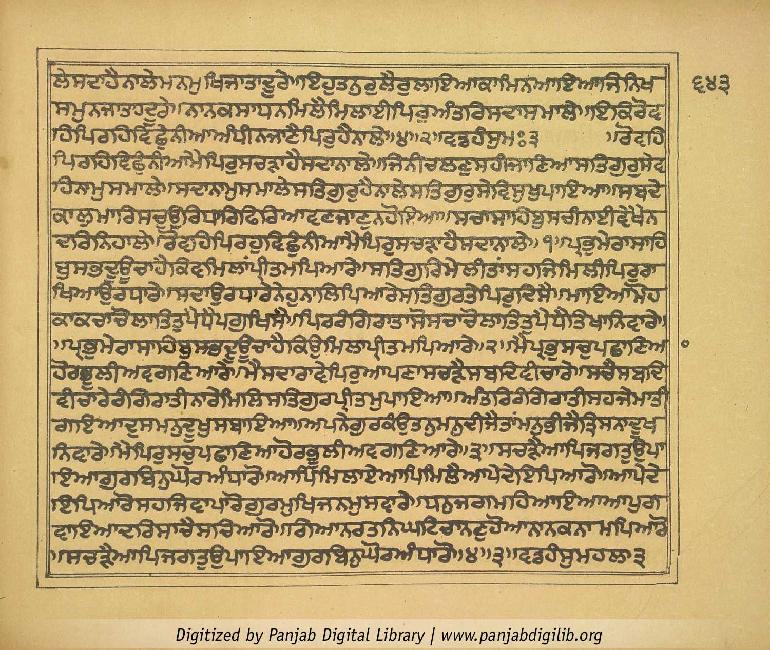 ੬੪੩
ਲੇਸਦਾਹੈਨਾਲੇਮਨਮੁਖਿਜਾਤਾਦੂਰੇ॥ਇਹੁਤਨੁਰੁਲੈਰੁਲਾਇਆਕਾਮਿਨਆਇਆਜਿਨਿਖ
ਸਮੁਨਜਾਤਾਹਦੂਰੇ॥ਨਾਨਕਸਾਧਨਮਿਲੈਮਿਲਾਈਪਿਰੁਅੰਤਰਿਸਦਾਸਮਾਲੇ॥ਇਕਿਰੋਵ
ਹਿਪਿਰਹਿਵਿਛੁੰਨੀਆਅੰਧੀਨਜਾਣੈਪਿਰੁਹੈਨਾਲੇ॥੪॥੨॥ਵਡਹੰਸੁਮਃ੩ ॥ਰੋਵਹਿ
ਪਿਰਹਿਵਿਛੁੰਨੀਆਮੈਪਿਰੁਸਚੜਾਹੈਸਦਾਨਾਲੇ॥ਜਿਨੀਚਲਣੁਸਹੀਜਾਣਿਆਸਤਿਗੁਰੁਸੇਵ
ਹਿਨਾਮੁਸਮਾਲੇ॥ਸਦਾਨਾਮੁਸਮਾਲੇਸਤਿਗੁਰੁਹੈਨਾਲੇਸਤਿਗੁਰੁਸੇਵਿਸੁਖੁਪਾਇਆ॥ਸਬਦੇ
ਕਾਲੁਮਾਰਿਸਚੁਉਰਿਧਾਰਿਫਿਰਿਆਵਣਜਾਣੁਨਹੋਇਆ॥ਸਚਾਸਾਹਿਬੁਸਚੀਨਾਈਵੇਖੈਨ
ਦਰਿਨਿਹਾਲੇ॥ਰੋਵਹਿਪਿਰਹੁਵਿਛੁੰਨੀਆਮੈਪਿਰੁਸਚੜਾਹੈਸਦਾਨਾਲੇ॥੧॥ਪ੍ਰਭੁਮੇਰਾਸਾਹਿ
ਬੁਸਭਦੂਊਚਾਹੈਕਿਵਮਿਲਾਂਪ੍ਰੀਤਮਪਿਆਰੇ॥ਸਤਿਗੁਰਿਮੇਲੀਤਾਂਸਹਜਿਮਿਲੀਪਿਰੁਰਾ
ਖਿਆਉਰਧਾਰੇ॥ਸਦਾਉਰਧਾਰੇਨੇਹੁਨਾਲਿਪਿਆਰੇਸਤਿਗੁਰਤੇਪਿਰੁਦਿਸੈ॥ਮਾਇਆਮੋਹ
ਕਾਕਚਾਚੋਲਾਤਿਤੁਪੈਧੈਪਗੁਖਿਸੈ॥ਪਿਰਰੰਗਿਰਾਤਾਸੋਸਚਾਚੋਲਾਤਿਤੁਪੈਧੈਤਿਖਾਨਿਵਾਰੇ।
॥ਪ੍ਰਭੁਮੇਰਾਸਾਹਿਬੁਸਭਦੂਊਚਾਹੈਕਿਉਮਿਲਾਪ੍ਰੀਤਮਪਿਆਰੇ॥੨॥ਮੈਪ੍ਰਭੁਸਚੁਪਛਾਣਿਆ
ਹੋਰਭੂਲੀਅਵਗਣਿਆਰੇ॥ਮੈਸਦਾਰਾਵੇਪਿਰੁਆਪਣਾਸਚੜੈਸਬਦਿਵੀਚਾਰੇ॥ਸਚੈਸਬਦਿ
ਵੀਚਾਰੇਰੰਗਿਰਾਤੀਨਾਰੇਮਿਲਿਸਤਿਗੁਰਪ੍ਰੀਤਮੁਪਾਇਆ॥ਅੰਤਰਿਰੰਗਿਰਾਤੀਸਹਜੇਮਾਤੀ
ਗਇਆਦੁਸਮਨੁਦੂਖੁਸਬਾਇਆ॥ਅਪਨੇਗੁਰਕੰਉਤਨੁਮਨੁਦੀਜੈਤਾਂਮਨੁਭੀਜੈਤ੍ਰਿਸਨਾਦੂਖ
ਨਿਵਾਰੇ॥ਮੈਪਿਰੁਸਚੁਪਛਾਣਿਆਹੋਰਭੂਲੀਅਵਗਣਿਆਰੇ॥੩॥ਸਚੜੈਆਪਿਜਗਤੁਉਪਾ
ਇਆਗੁਰਬਿਨੁਘੋਰਅੰਧਾਰੋ॥ਆਪਿਮਿਲਾਏਆਪਿਮਿਲੈਆਪੇਦੇਇਪਿਆਰੋ॥ਆਪੇਦੇ
ਇਪਿਆਰੋਸਹਜਿਵਾਪਾਰੋਗੁਰਮੁਖਿਜਨਮੁਸਵਾਰੇ॥ਧਨੁਜਗਮਹਿਆਇਆਆਪੁਗ
ਵਾਇਆਦਰਿਸਾਚੈਸਚਿਆਰੋ॥ਗਿਆਨਰਤਨਿਘਟਿਚਾਨਣੁਹੋਆਨਾਨਕਨਾਮਪਿਆਰੋ
॥ਸਚੜੈਆਪਿਜਗਤੁਉਪਾਇਆਗੁਰਬਿਨੁਘੋਰਅੰਧਾਰੋ॥੪॥੩॥ਵਡਹੰਸੁਮਹਲਾ੩
Digitized by Panjab Digital Library | www.panjabdigilib.org